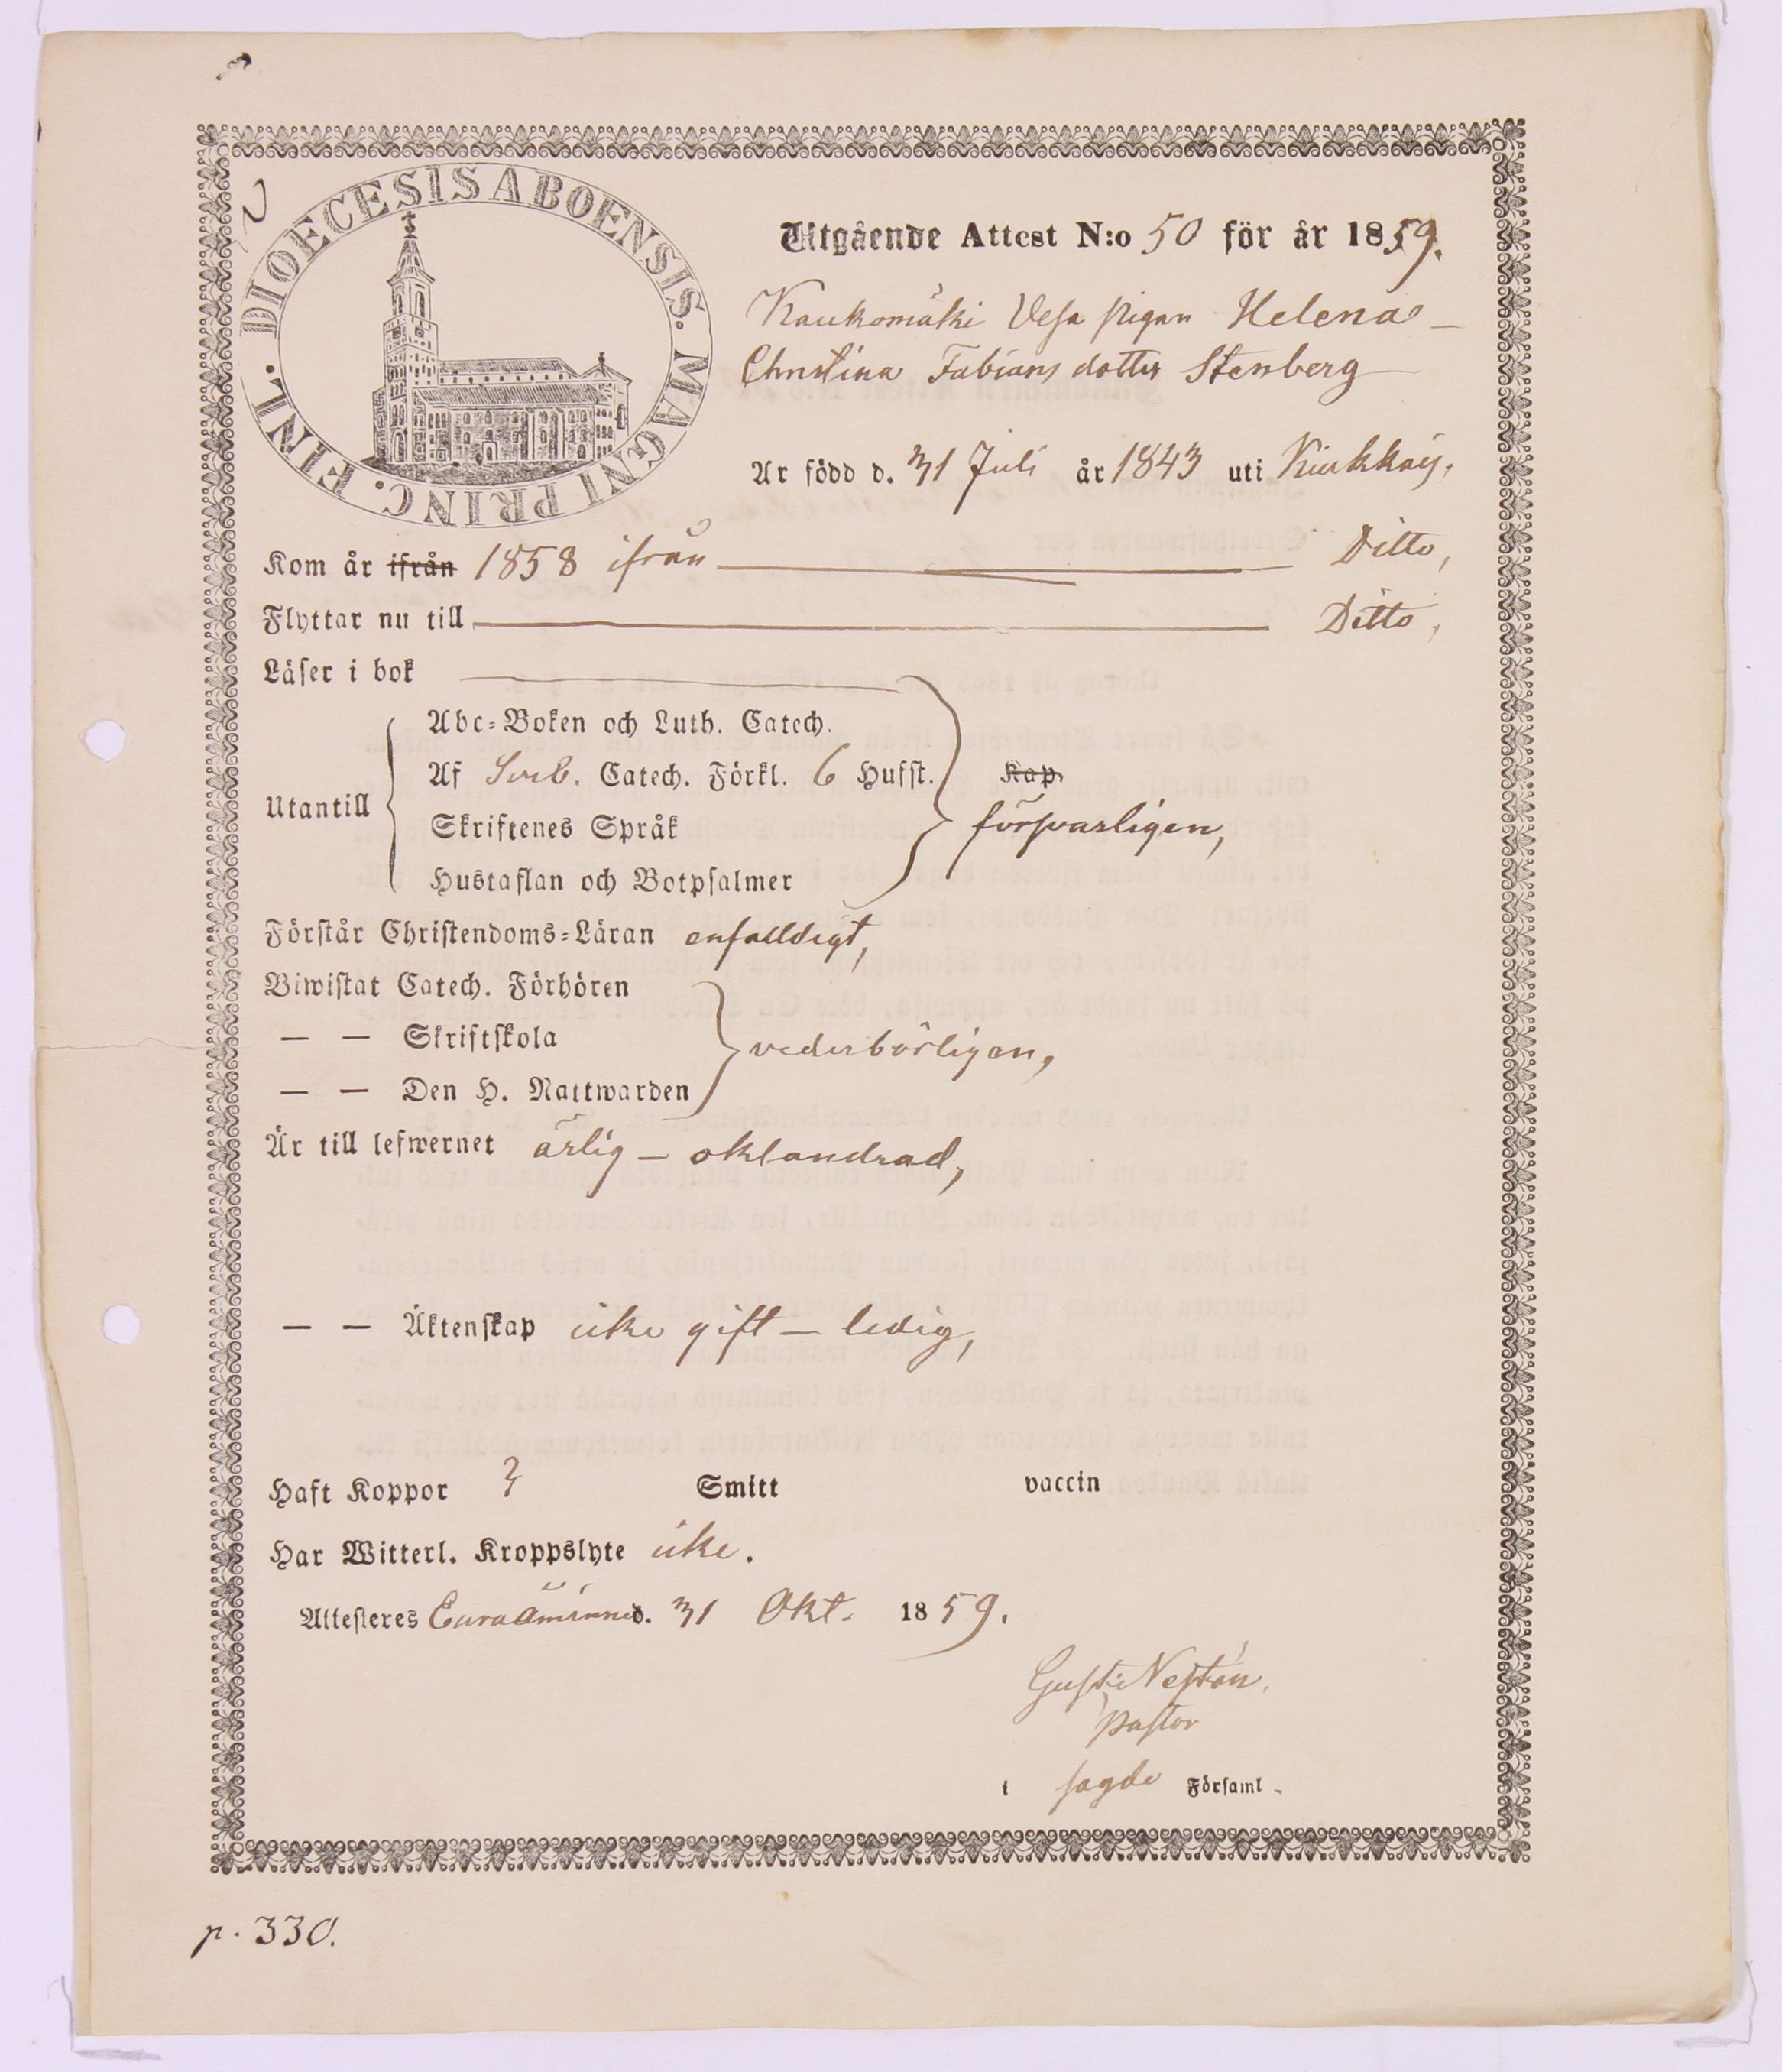 DIOECESIS ABOENSIS. MAGNI PRINC. FINL.
Utgående Attest N:o 50 för år 1859.
Kaukomäki Vesa pigan Helena
Christina Fabians dotter Stenberg
Är född d. 31 Juli år 1843 uti Kiukkais,
Kom år ifrån 1858 ifrån Ditto,
Flyttar nu till Ditto,
Läser i bok
Abc-Boken och Luth. Catech.
Af Sveb. Catech. Förkl. 6 Hufst. Kap.
Utantill
Skriftenes Språk försvarligen,
Hustaflan och Botpsalmer
Förstår Christendoms-Läran enfalldigt,
Biwistat Catech. Förhören
— — Skriftskola vederbörligen,
— — Den H. Nattwarden
Är till lefwernet ärlig – oklandrad,
— — Äktenskap icke gift – ledig,
Haft Koppor ? Smitt vaccin
Har Witterl. Kroppslyte icke.
Attesteres Euraåminne d. 31 Okt. 1859.
Pastor
i sagde Församl.
p. 330.